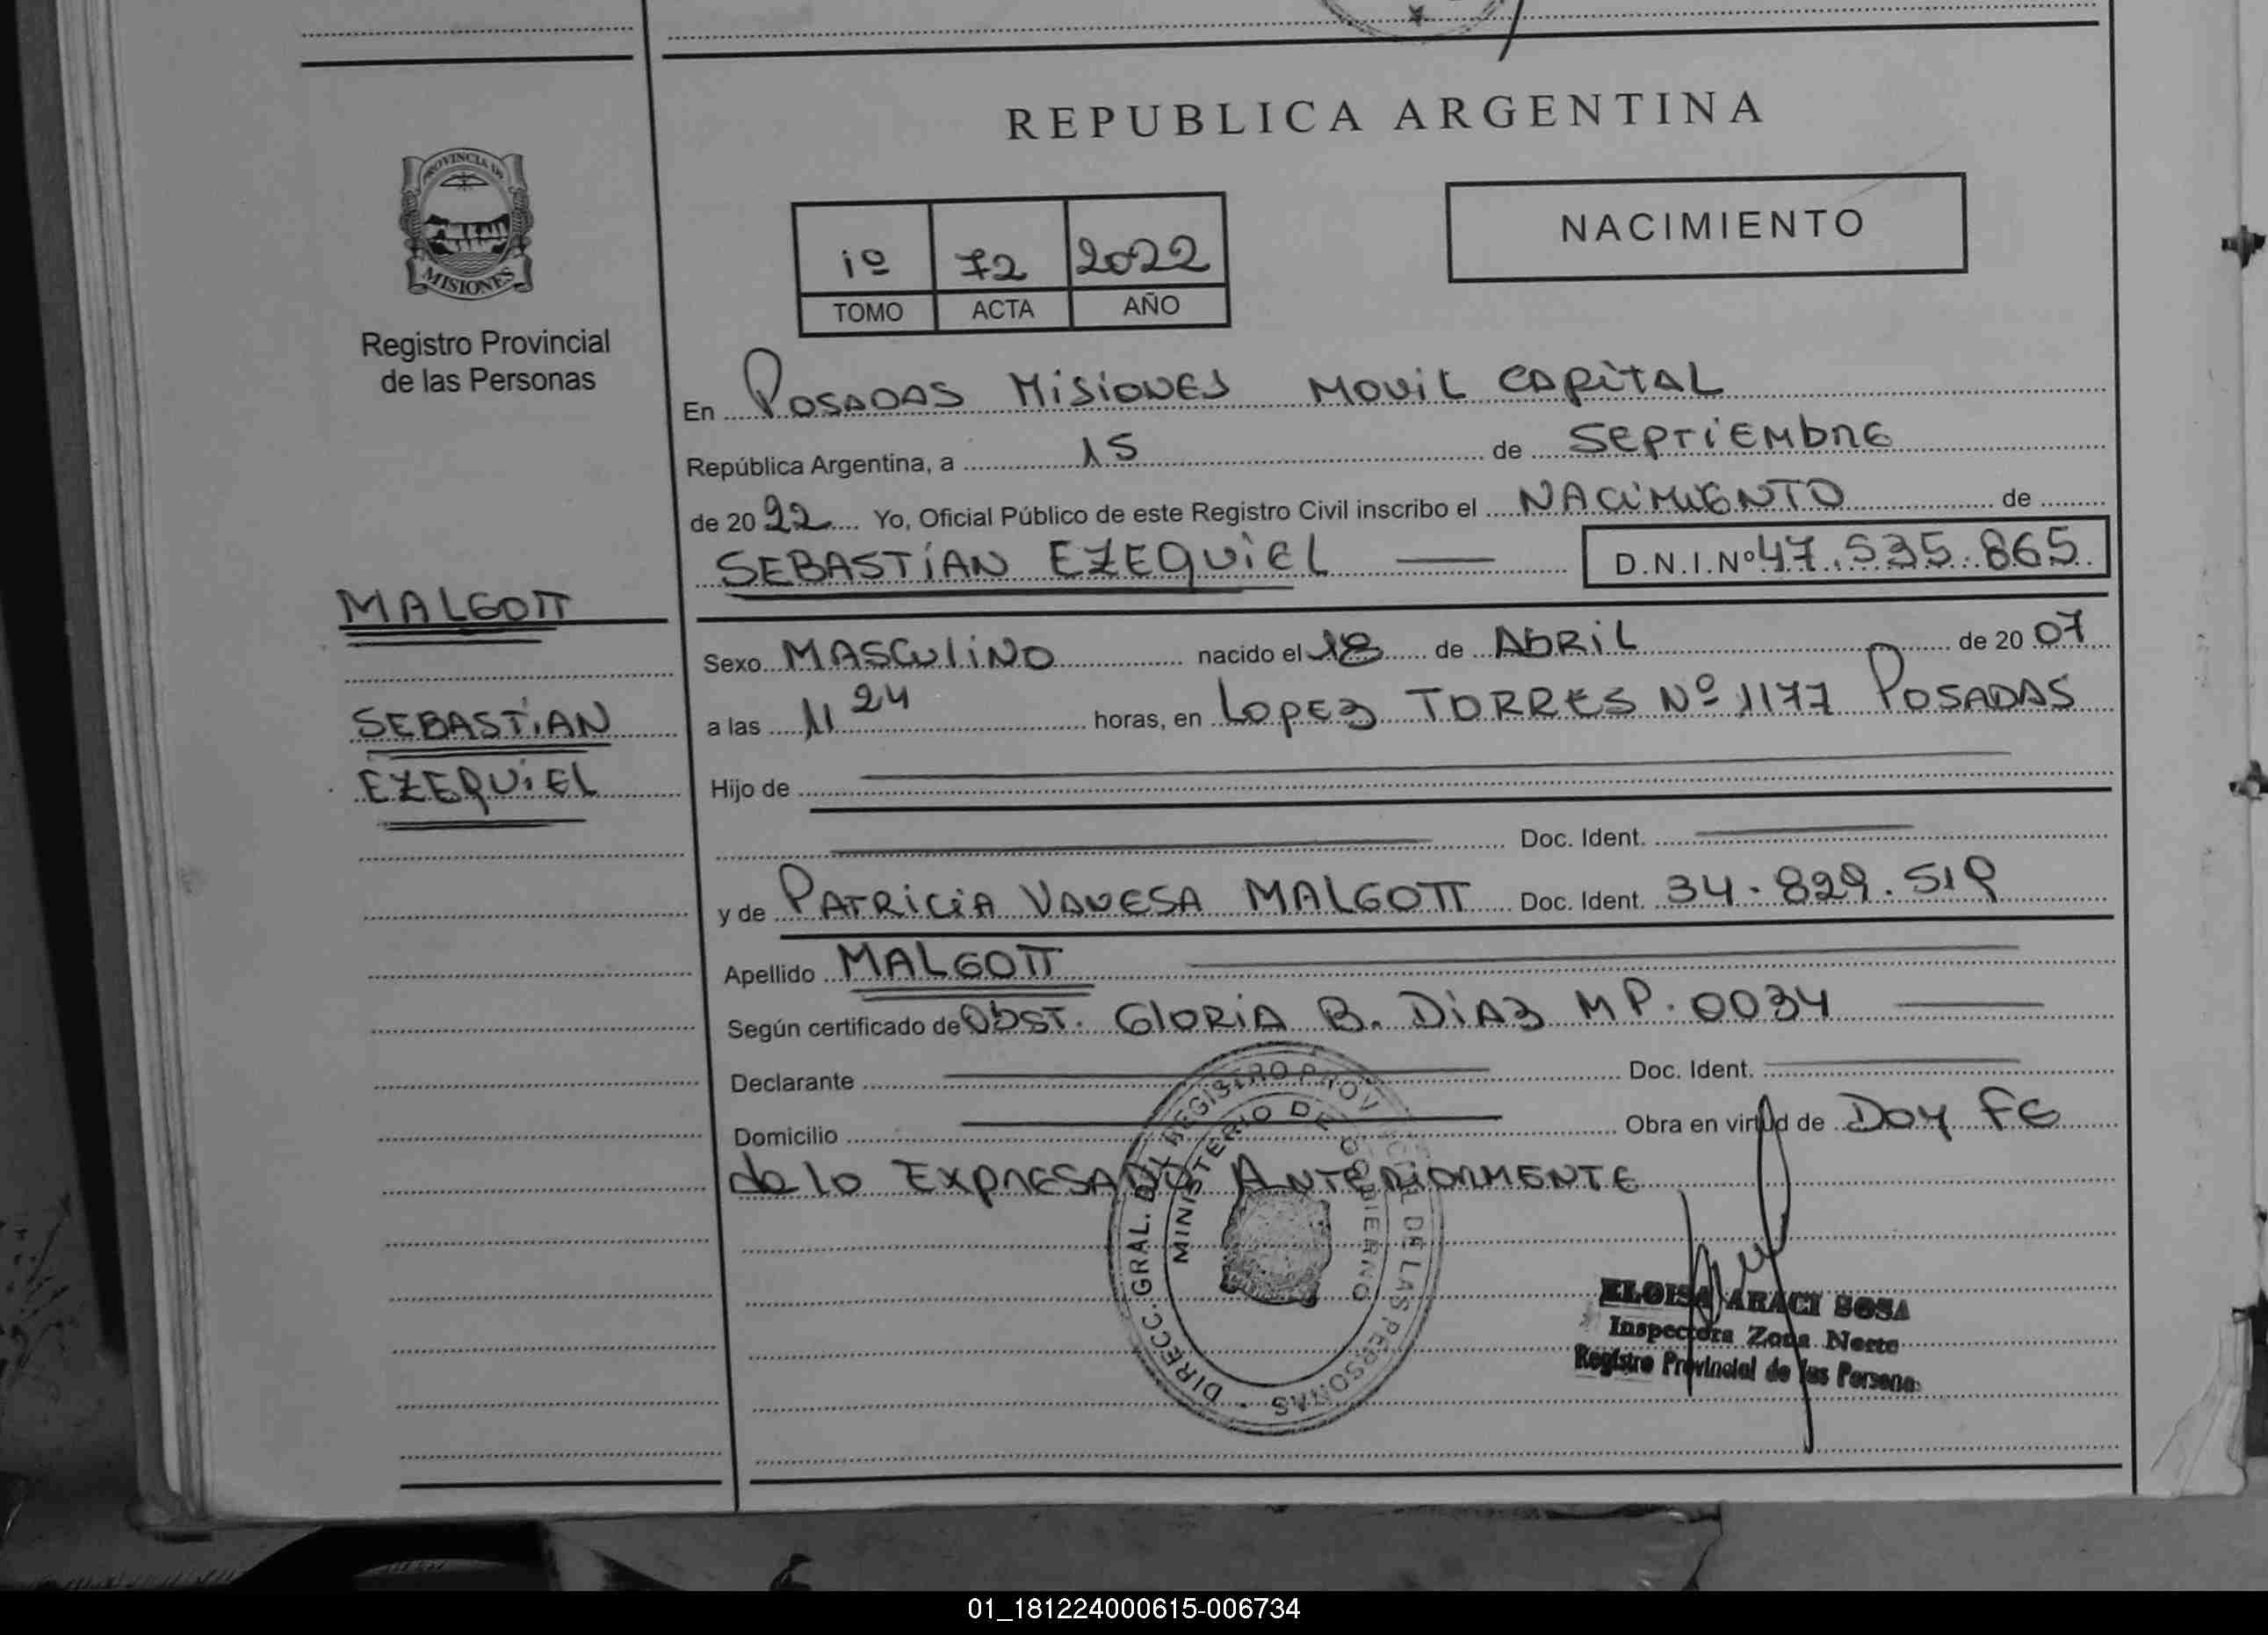 REPUBLICA ARGENTINA
NACIMIENTO
1º 72 2022
TOMO ACTA AÑO
PROVINCIA DE
MISIONES
Registro Provincial
de las Personas
En POSADAS MISIONES MOVIL CAPITAL
República Argentina, a 15 de SEPTIEMBRE
de 2022 Yo, Oficial Público de este Registro Civil inscribo el NACIMIENTO de
SEBASTIAN EZEQUIEL D.N.I.Nº 47.535.865
MALGOTT
SEBASTIAN
EZEQUIEL
Sexo MASCULINO nacido el 18 de ABRIL de 2007
a las 11 24 horas, en LOPEZ TORRES Nº 1177 POSADAS
Hijo de
Doc. Ident.
y de PATRICIA VANESA MALGOTT Doc. Ident. 34.829.519
Apellido MALGOTT
Según certificado de OBST. GLORIA B. DIAZ MP. 0034
Declarante Doc. Ident.
Domicilio Obra en virtud de DOY FE
de lo EXPRESADO ANTERIORMENTE
DIRECC. GRAL. DEL REGISTRO PROVINCIAL DE LAS PERSONAS
MINISTERIO DE GOBIERNO
ELOISA ARACI SOSA
Inspectora Zona Norte
Registro Provincial de las Personas
01_181224000615-006734